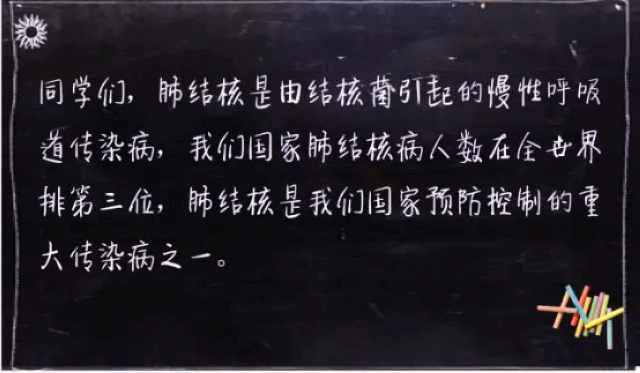 同学们，肺结核是由结核菌引起的慢性呼吸
道传染病，我们国家肺结核病人数在全世界
排第三位，肺结核是我们国家预防控制的重
大传染病之一。